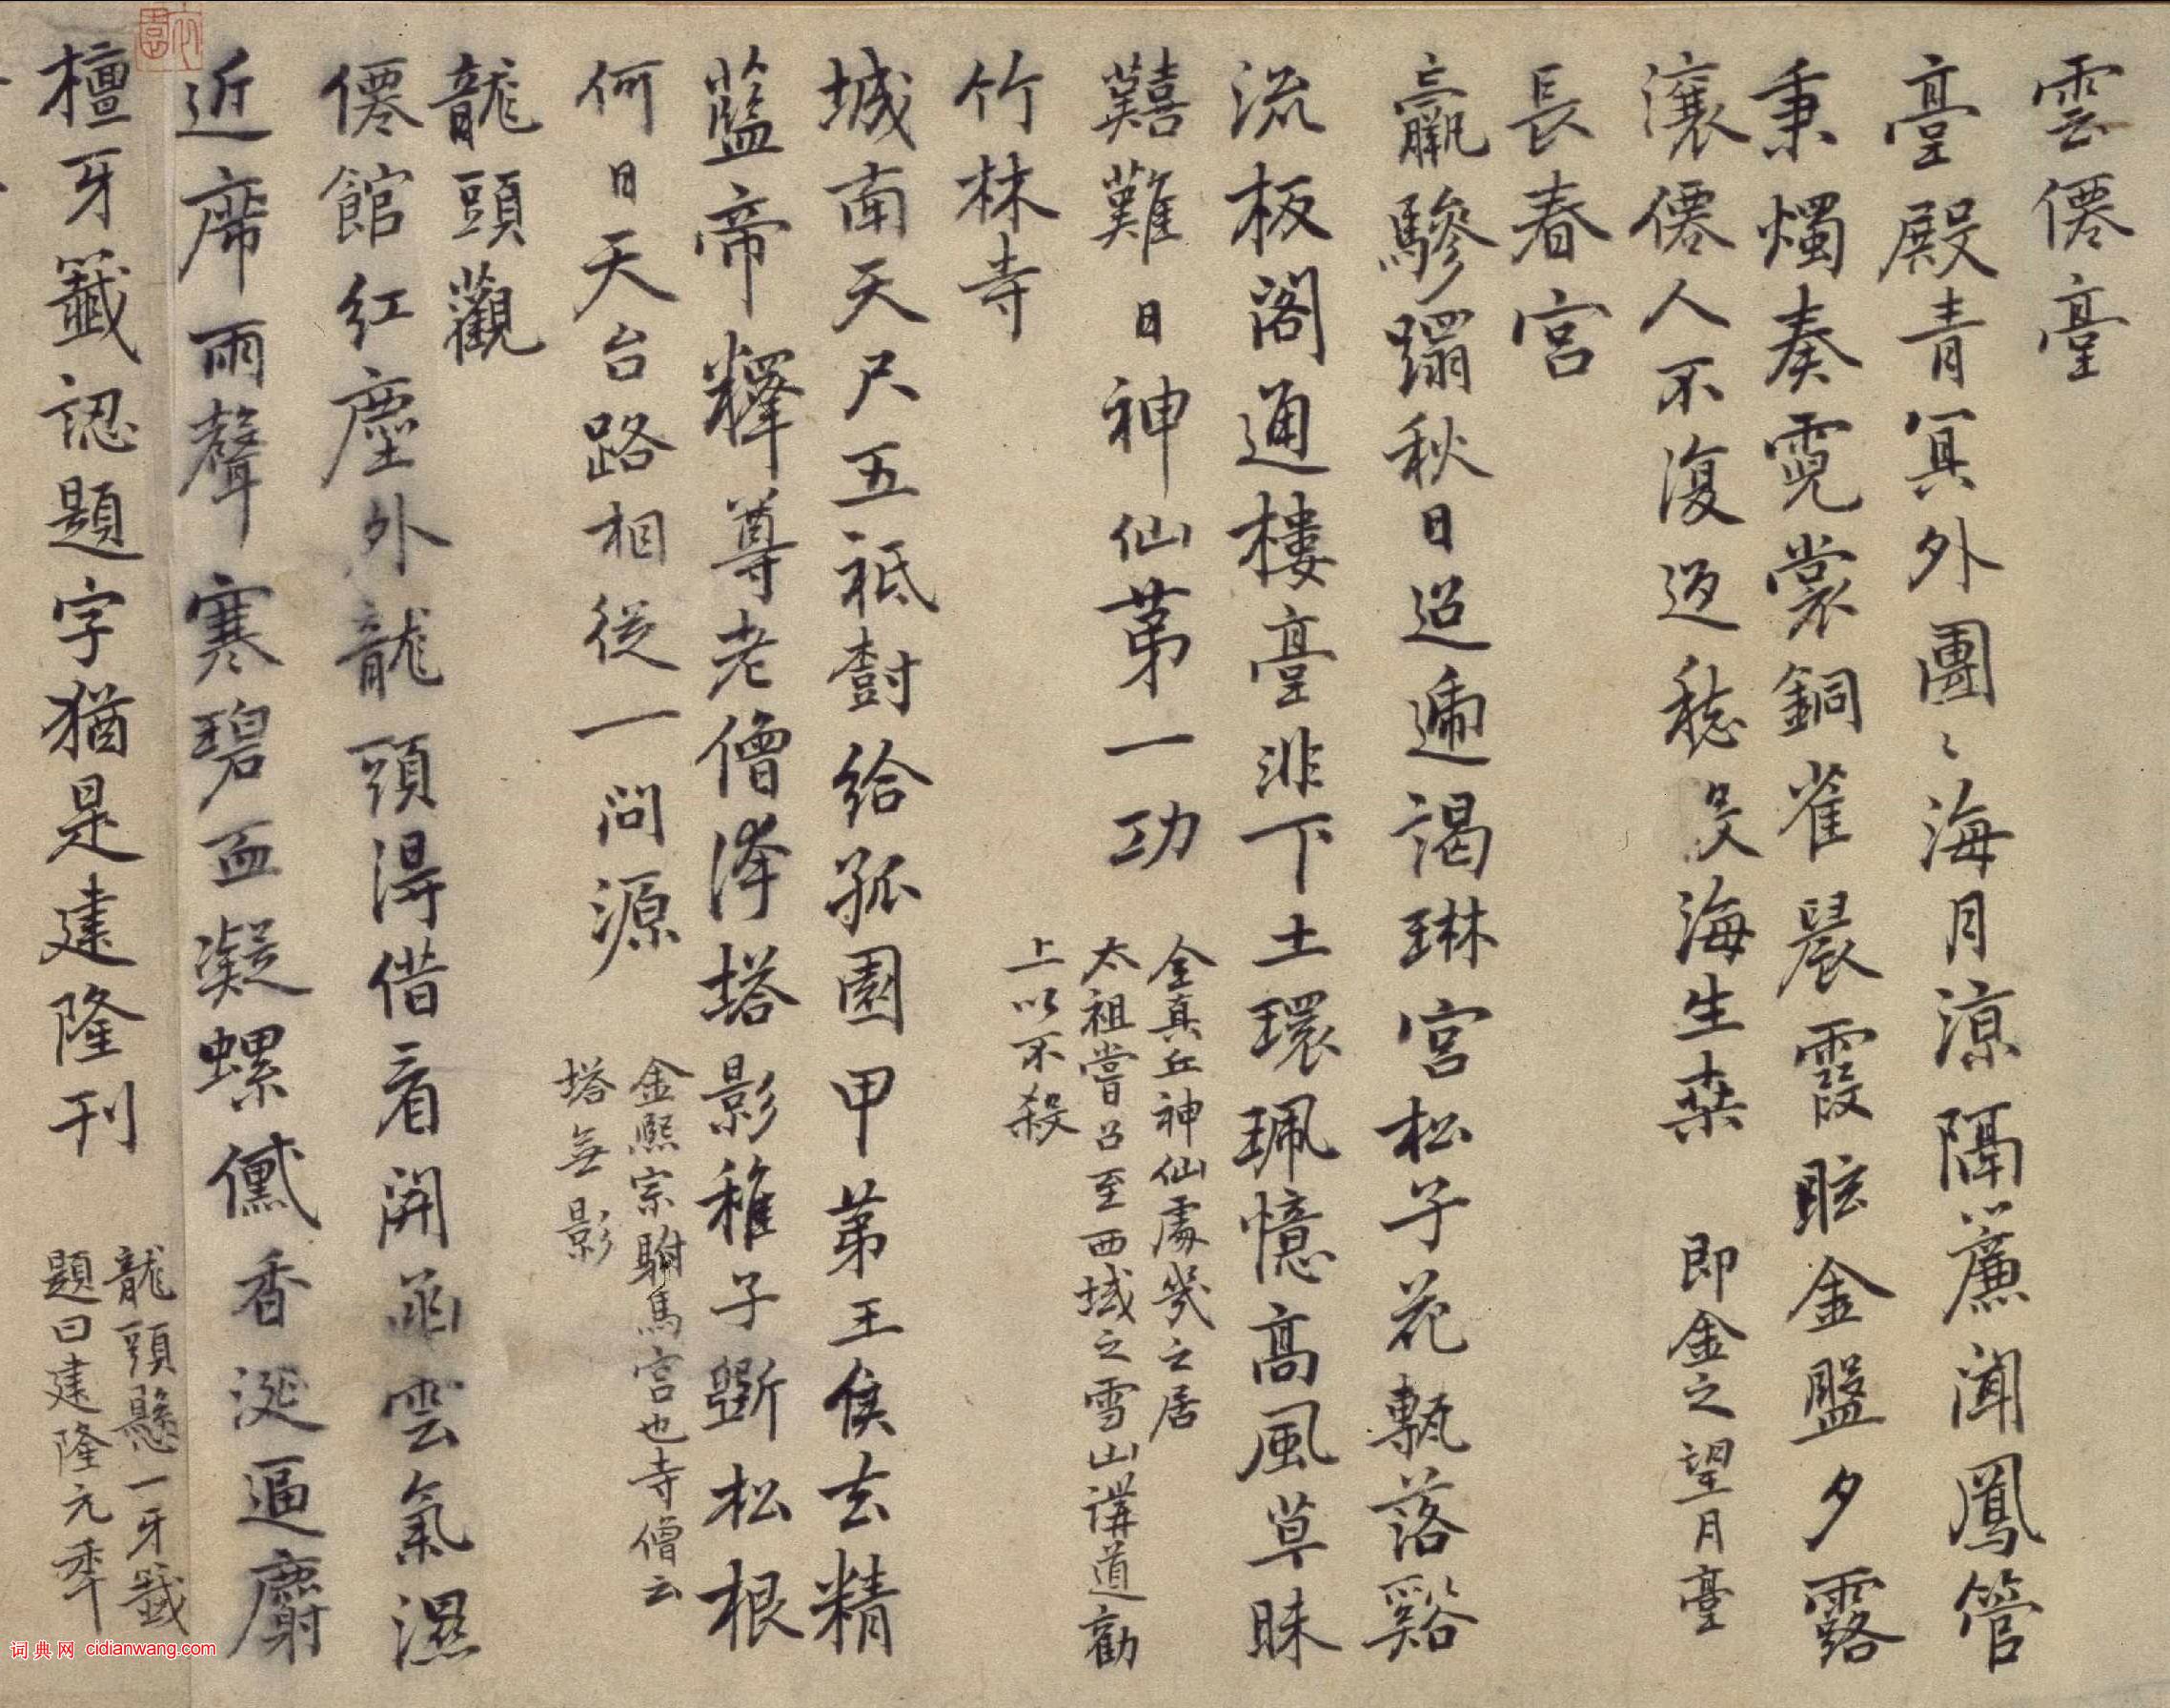 雲僊臺
臺殿青冥外團〻海月涼隔簾聞鳳管
秉燭奏霓裳銅雀晨霞眩金盤夕露
瀼僊人不復返愁見海生桑 即金之望月臺
長春宮
羸驂蹋秋日迢遞謁琳宮松子花甎落谿
流板閣通樓臺非下土環珮憶高風草昧
囏難日神仙第一功
全真丘神仙處幾之居
太祖嘗召至西域之雪山講道勸
上以不殺
竹林寺
城南天尺五祇樹給孤園甲第王侯去精
藍帝釋尊老僧浄塔影稚子斵松根
何日天台路相從一問源
金熙宗駙馬宮也寺僧云
塔無影
龍頭觀
僊館紅塵外龍頭得借看開函雲氣濕
近席雨聲寒碧血凝螺儎香涎逼麝
檀牙籤認題字猶是建隆刊
龍頭懸一牙籤
題曰建隆元年
六
園
词典网 cidianwang.com